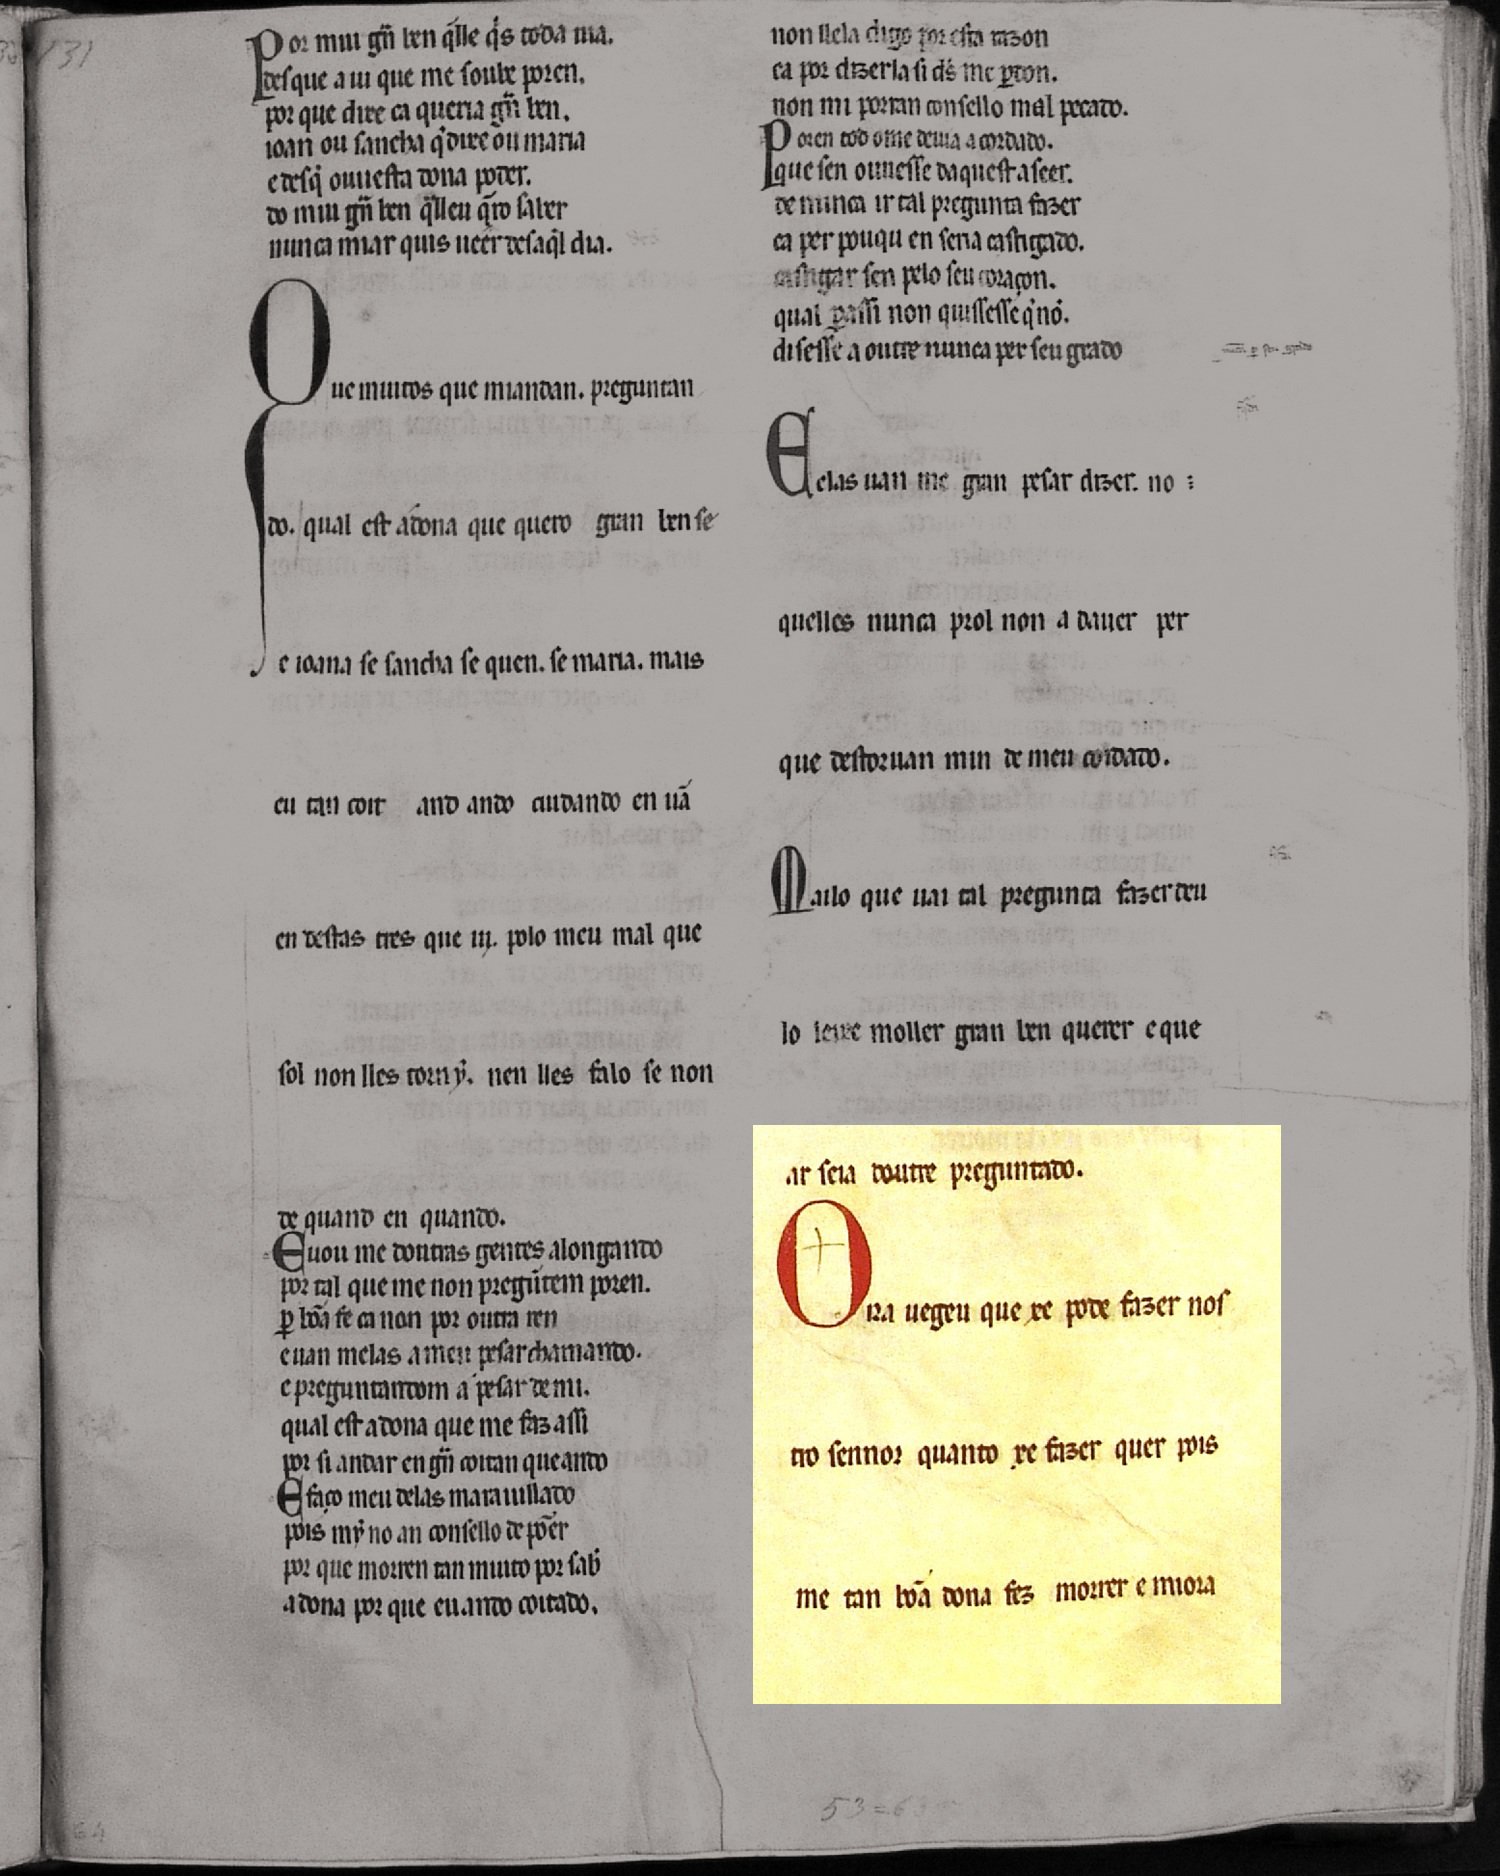 131
Por miu gñ ben q̃lle q̇s toda uia.
desque a ui que me soube poren.
por que dire ca queria gñ ben.
ioan ou sancha q̇ dire ou maria
e desq̇ ouuesta dona poder.
do miu gñ ben q̃lleu q̃ro saber
nunca miar quis ueer desaq̃l dia.
Oue muitos que miandan. preguntan
do. qual est adona que quero gran ben se
e ioana se sancha se quen. se maria. mais
eu tan coit and ando cuidando en uã
en destas tres que ui. polo meu mal que
sol non lles torn ẏ. nen lles falo se non
de quand en quando.
Euou me doutras gentes alongando
por tal que me non pregũtem poren.
ꝑ bõa fe ca non por outra ren
euan melas a meu pesar chamando.
e preguntandom a pesar de mi.
qual est adona que me faz assi
por si andar en gñ coitan que ando
E faço meu delas marauillado
pois mẏ no an consello de põer
por que morren tan muito por sab̃
a dona por que eu ando coitado.
non llela digo por esta razon
ca por dizerla si ds̃ me ꝑdon.
non mi porran consello mal pecado.
Poren tod ome deuia acordado.
que sen ouuesse daquest a seer.
de nunca ir tal pregunta fazer
ca per pouqu en seria castigado.
castigar sen pelo seu coraçon.
qual ꝑassi non quisesse q̇ nõ.
disesse a outre nunca per seu grado
Eelas uan me gran pesar dizer. no
quelles nunca prol non a dauer per
que destoruan min de meu coidado.
Mailo que uai tal pregunta fazer deu
lo leixe moller gran ben querer e que
ar seia doutre preguntado.
Ora uegeu que xe pode fazer nos
tro sennor quanto xe fazer quer pois
me tan bõa dona fez morrer e miora
53=63
64